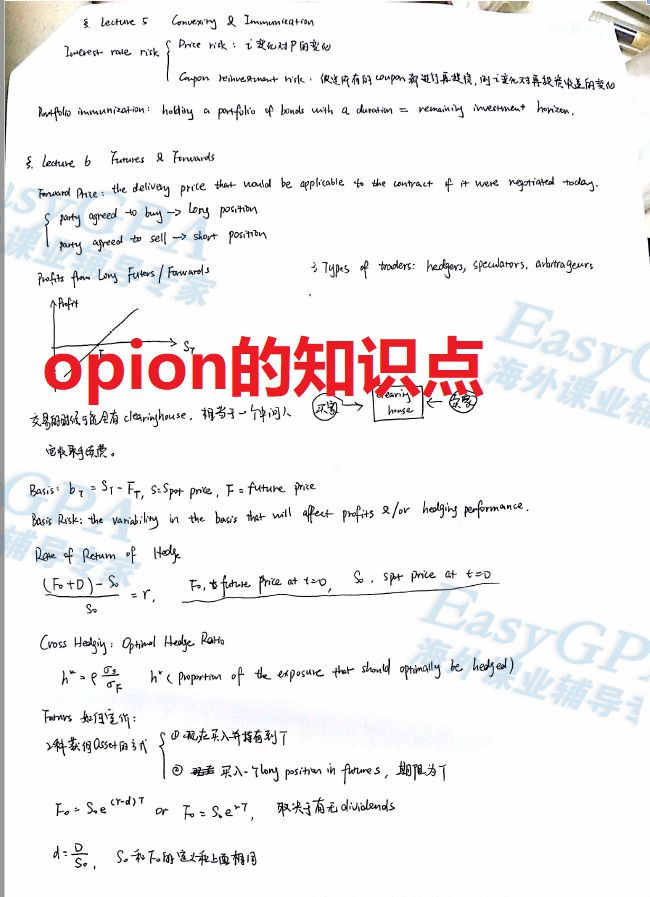 §. Lecture 5 Convexity & Immunization
Interest rate risk { Price risk: i变化对P的变化
Coupon reinvestment risk: 假设所有的coupon都进行再投资, 则i变化对再投资收益的变化
Portfolio immunization: holding a portfolio of bonds with a duration = remaining investment horizon.
§. Lecture 6 Futures & Forwards
Forward Price: the delivery price that would be applicable to the contract if it were negotiated today.
{ party agreed to buy → Long position
party agreed to sell → short position
Profits from Long Futers/Forwards
3 Types of traders: hedgers, speculators, arbitrageurs
Profit
F
S_T
opion的知识点
交易的时候可能会有clearinghouse, 相当于一个中间人
买家 → clearing house ← 卖家
会收取手续费。
Basis: b_T = S_T - F_T, S=Spot price, F = future price
Basis Risk: the variability in the basis that will affect profits &/or hedging performance.
Rate of Return of Hedge
(F₀+D) - S₀ / S₀ = r, F₀, future price at t=0, S₀, spot price at t=0
Cross Hedging: Optimal Hedge Ratio
h* = ρ σ_S / σ_F h* (proportion of the exposure that should optimally be hedged)
Futurs 如何定价:
2种获得asset的方式 { ① 现在买入并持有到T
② 买入一个long position in futures, 期限为T
F₀ = S₀e^(r-d)T or F₀ = S₀e^rT, 取决于有无dividends
d = D / S₀, S₀和F₀的定义和上面相同
EasyGPA
海外课业辅导专家
EasyGPA
海外课业辅导专家
EasyGPA
海外课业辅导专家